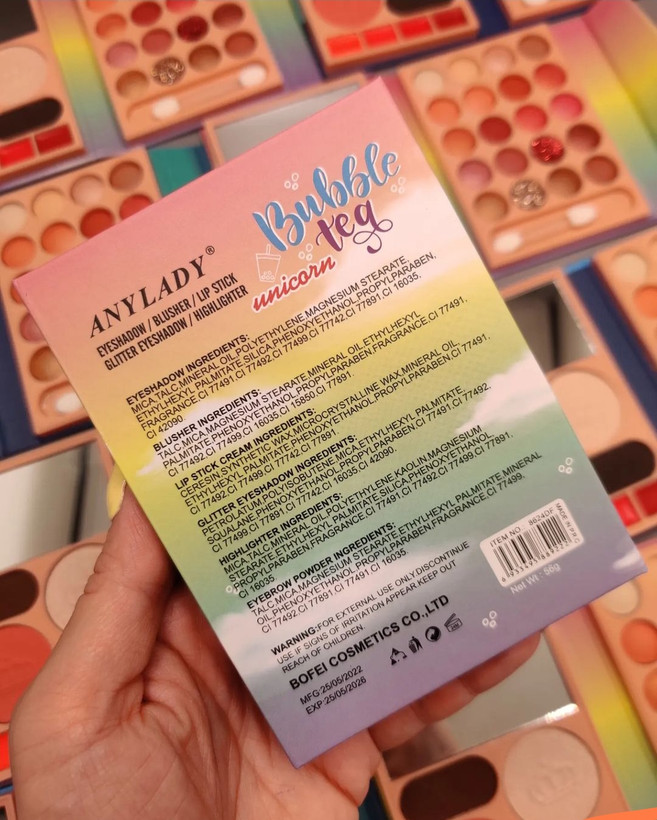 Bubble
tea
unicorn
ANYLADY®
EYESHADOW / BLUSHER / LIP STICK
GLITTER EYESHADOW / HIGHLIGHTER
EYESHADOW INGREDIENTS:
MICA,TALC,MINERAL OIL,POLYETHYLENE,MAGNESIUM STEARATE,
ETHYLHEXYL PALMITATE,SILICA,PHENOXYETHANOL,PROPYLPARABEN,
FRAGRANCE.CI 77491.CI 77492.CI 77499.CI 77742.CI 77891.CI 16035.
CI 42090
BLUSHER INGREDIENTS:
TALC,MICA,MAGNESIUM STEARATE,MINERAL OIL,ETHYLHEXYL
PALMITATE,PHENOXYETHANOL,PROPYLPARABEN,FRAGRANCE.CI 77491.
CI 77492.CI 77499.CI 16035.CI 15850.CI 77891
LIP STICK CREAM INGREDIENTS:
CERESIN,SYNTHETIC WAX,MICROCRYSTALLINE WAX,MINERAL OIL,
ETHYLHEXYL PALMITATE,PHENOXYETHANOL,PROPYLPARABEN.CI 77491.
CI 77492.CI 77499.CI 77742.CI 77891.
GLITTER EYESHADOW INGREDIENTS:
PETROLATUM,POLYISOBUTENE,MICA,ETHYLHEXYL PALMITATE,
SQUALANE,PHENOXYETHANOL,PROPYLPARABEN.CI 77491.CI 77492.
CI 77499.CI 77891.CI 77742.CI 16035.CI 42090.
HIGHLIGHTER INGREDIENTS:
MICA,TALC,MINERAL OIL,POLYETHYLENE,KAOLIN,MAGNESIUM
STEARATE,ETHYLHEXYL PALMITATE,SILICA,PHENOXYETHANOL,
PROPYLPARABEN,FRAGRANCE.CI 77491.CI 77492.CI 77499.CI 77891.
CI 16035
EYEBROW POWDER INGREDIENTS:
TALC,MICA,MAGNESIUM STEARATE,ETHYLHEXYL PALMITATE,MINERAL
OIL,PHENOXYETHANOL,PROPYLPARABEN,FRAGRANCE.CI 77499.
CI 77492.CI 77891.CI 77491.CI 16035.
WARNING:FOR EXTERNAL USE ONLY.DISCONTINUE
USE IF SIGNS OF IRRITATION APPEAR.KEEP OUT
REACH OF CHILDREN.
BOFEI COSMETICS CO.,LTD
MFG:25/05/2022
EXP:25/05/2026
ITEM NO.: 8624DF
MADE IN P.R.C
Net Wt : 58g